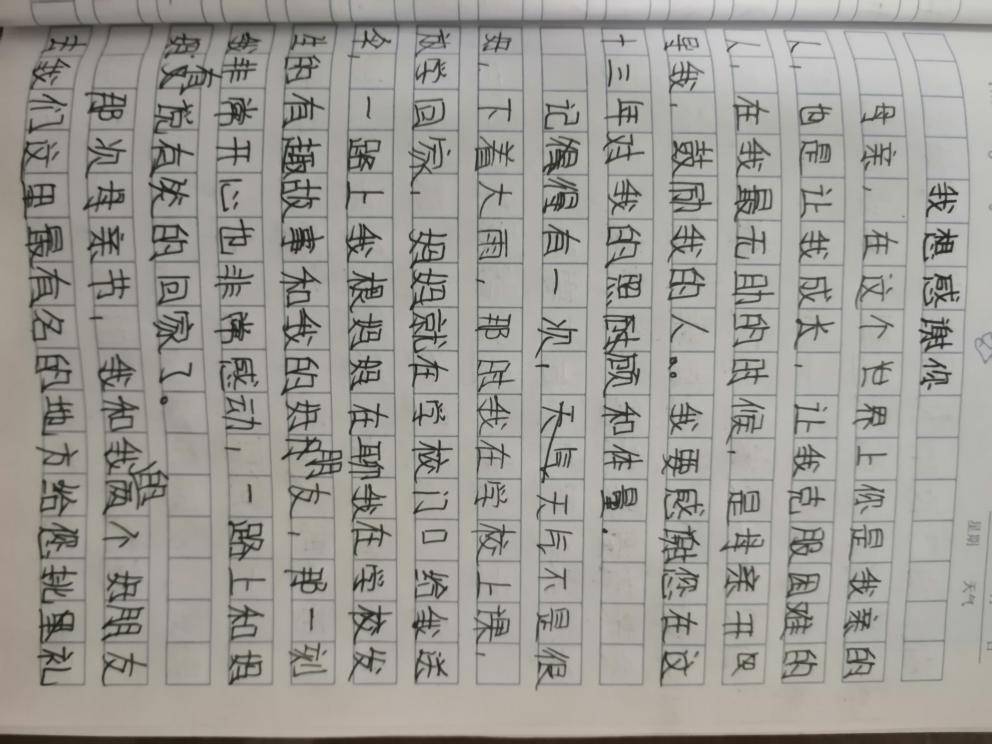 星期 天气
我想感谢你
母亲，在这个世界上你是我亲的
人，也是让我成长，让我克服困难的
人，在我最无助的时候，是母亲开
导我，鼓励我的人。。我要感谢您在这
十三年对我的照顾和体量.
记得有一次，天气不是很
好，下着大雨，那时我在学校上课，
放学回家，妈妈就在学校门口给我送
伞，一路上我妈妈在聊我在学校发
生的有趣故事和我的好朋友，那一刻
我非常开心也非常感动，一路上和妈
妈有说有笑的回家了。
那次母亲节，我和我两个好朋友
去我们这里最有名的地方给您挑里礼